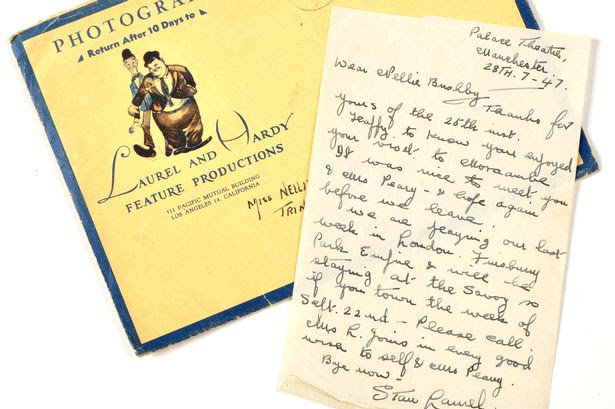 PHOTOGRA
Return After 10 Days to
LAUREL AND HARDY
FEATURE PRODUCTIONS
511 PACIFIC MUTUAL BUILDING
LOS ANGELES 14, CALIFORNIA
MISS NELLI
TRIN
Palace Theatre,
Manchester.
28TH.-7-47.
Dear Nellie Bushby Thanks for
yours of the 25th inst.
"Happy" to know you enjoyed
your visit to Morecambe.
It was nice to meet you
& Mrs Peary - & hope again
before we leave.
We are playing our last
week in London. Finsbury
Park Empire & will be
staying at the Savoy so
if you town the week of
Sept. 22nd - Please call.
Mrs L. joins in every good
wish to self & Mrs Peary.
Bye now -
Stan Laurel.